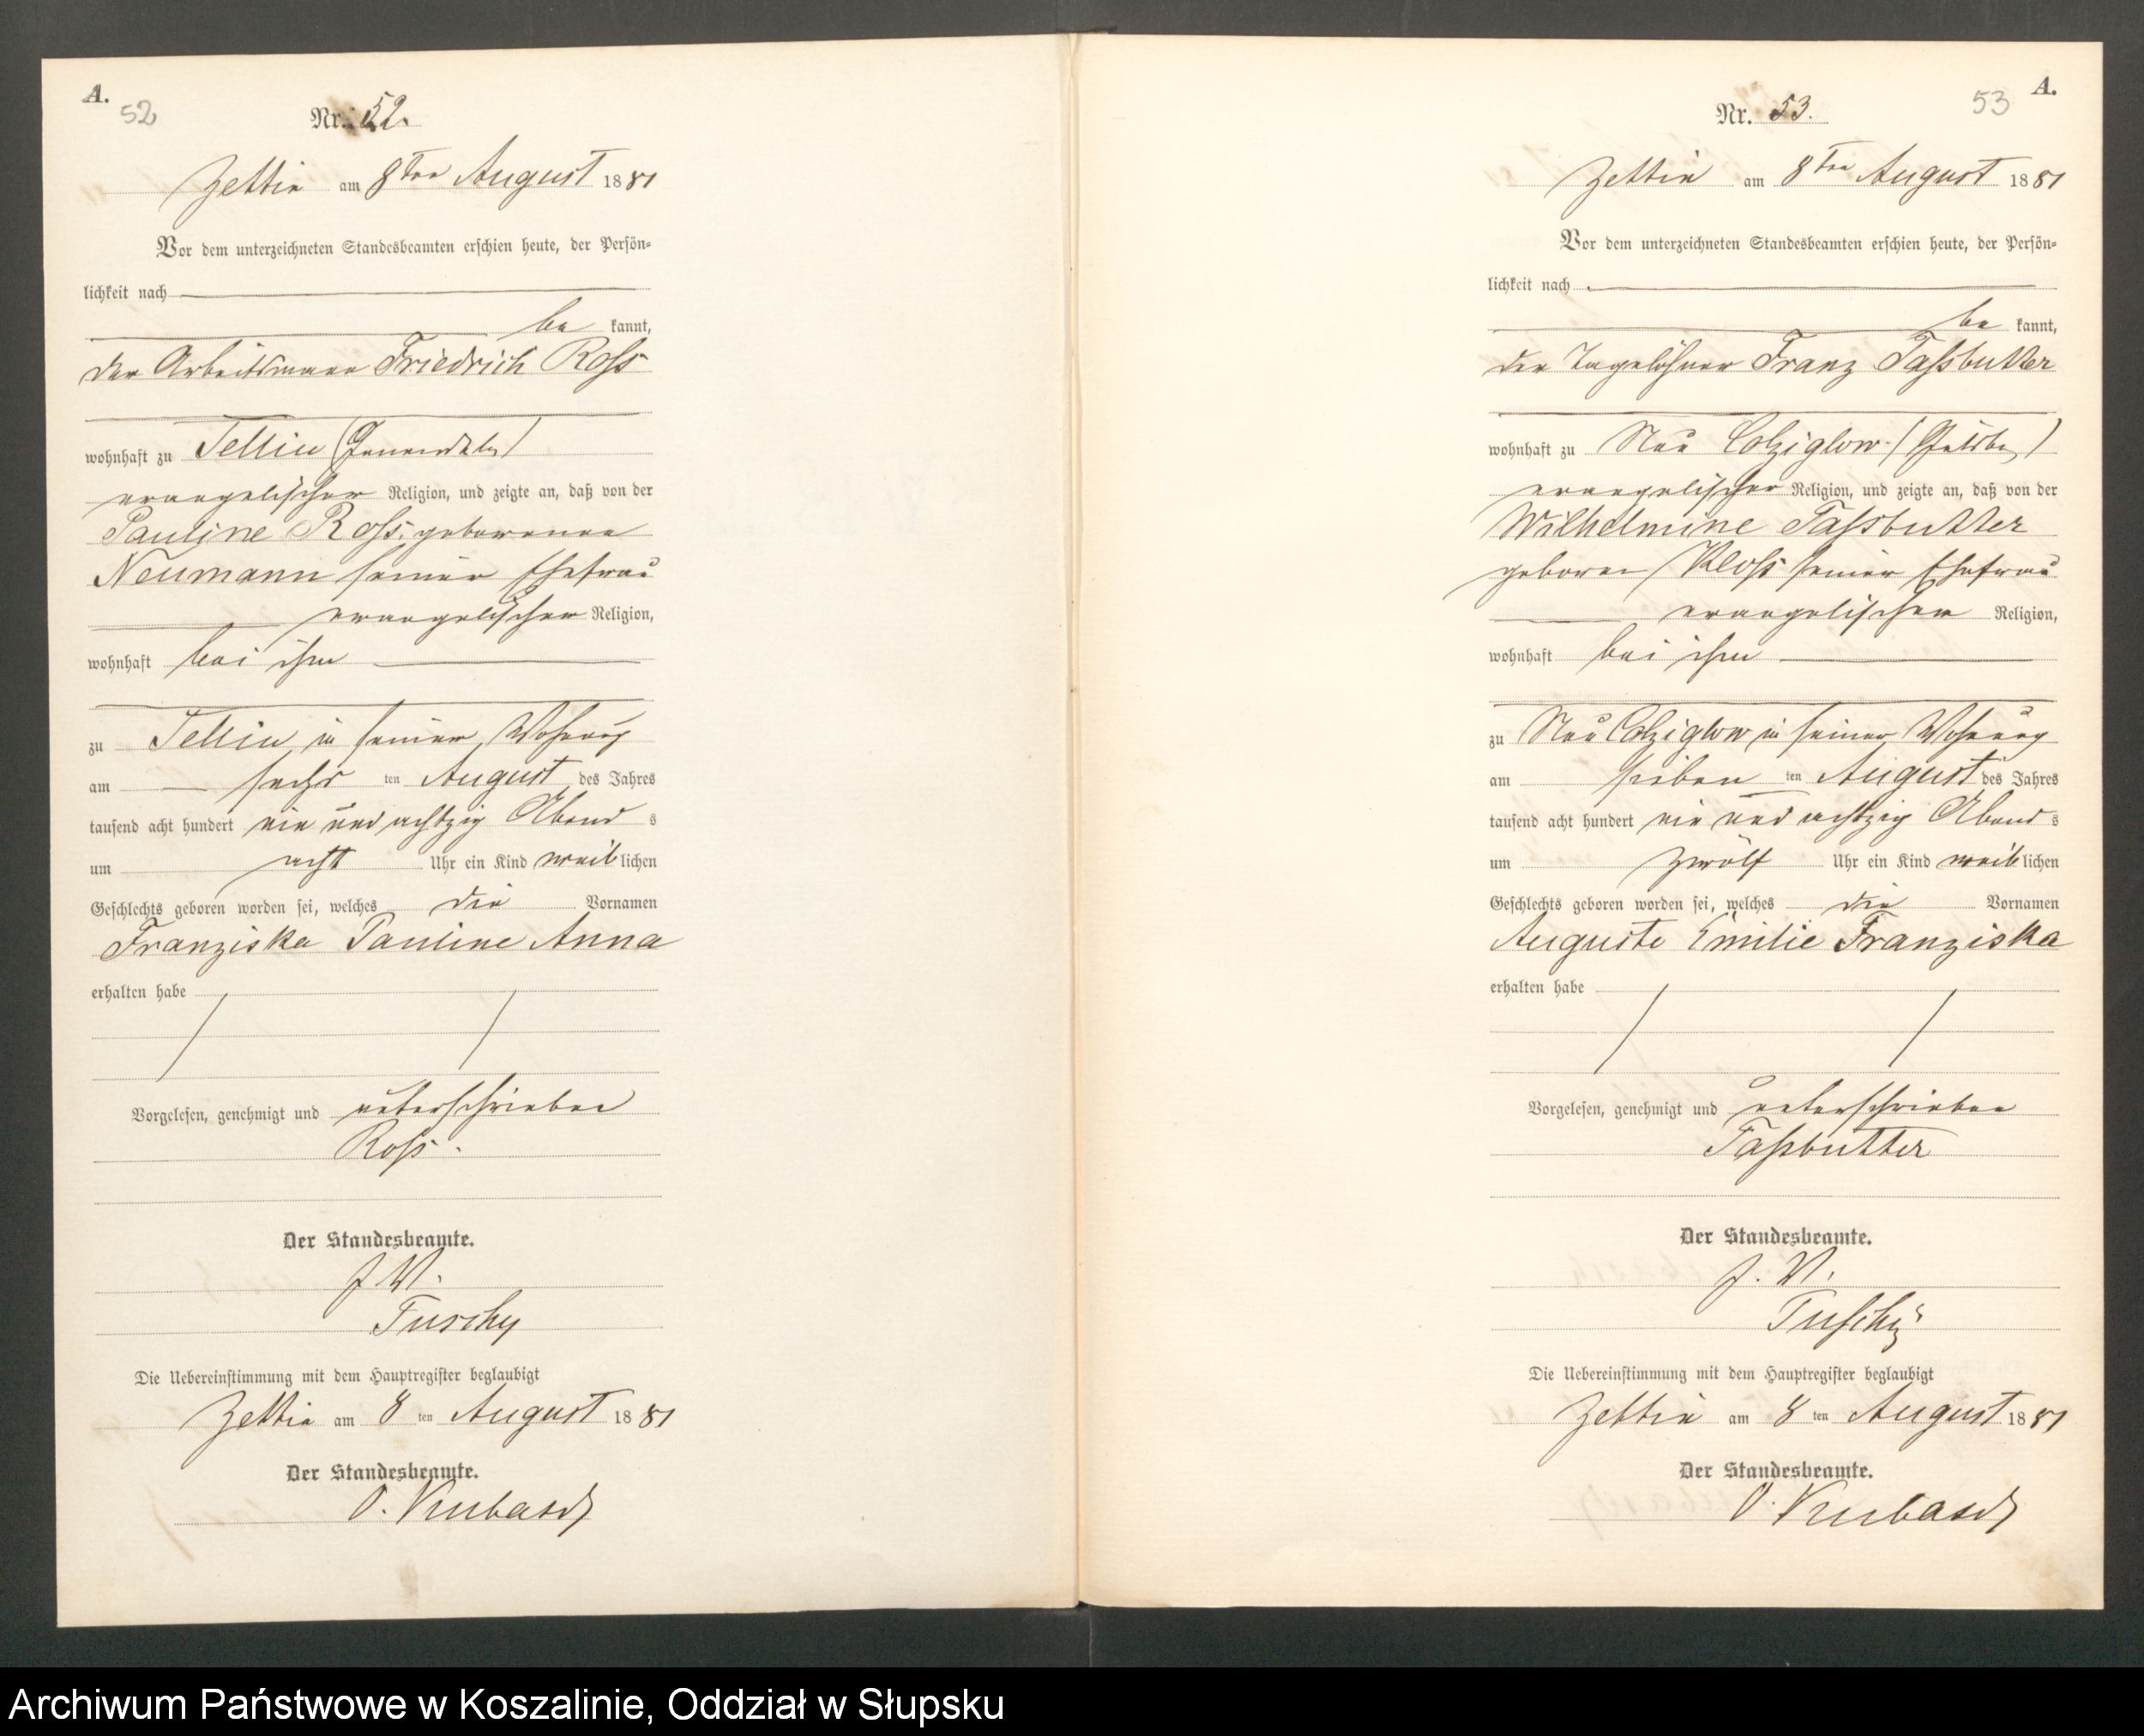 A.
52
Nr. 52.
Zettin am 8ten August 1881
Vor dem unterzeichneten Standesbeamten erschien heute, der Persön-
lichkeit nach
be kannt,
der Arbeitsmann Friedrich Ross
wohnhaft zu Tellin
evangelischer Religion, und zeigte an, daß von der
Pauline Ross, geborenen
Neumann seiner Ehefrau
evangelischer Religion,
wohnhaft bei ihm
zu Tellin, in seiner Wohnung
am sechs ten August des Jahres
tausend acht hundert ein und achtzig Abend s
um acht Uhr ein Kind weib lichen
Geschlechts geboren worden sei, welches die Vornamen
Franziska Pauline Anna
erhalten habe
Vorgelesen, genehmigt und unterschrieben
Ross.
Der Standesbeamte.
J. V.
Tuschy
Die Uebereinstimmung mit dem Hauptregister beglaubigt
Zettin am 8 ten August 1881
Der Standesbeamte.
O.
A.
53
Nr. 53.
Zettin am 8ten August 1881
Vor dem unterzeichneten Standesbeamten erschien heute, der Persön-
lichkeit nach
be kannt,
der Tagelöhner Franz Tassbutter
wohnhaft zu Neu Colziglow
evangelischer Religion, und zeigte an, daß von der
Wilhelmine Tassbutter
geboren Kloss seiner Ehefrau
evangelischer Religion,
wohnhaft bei ihm
zu Neu Colziglow in seiner Wohnung
am sieben ten August des Jahres
tausend acht hundert ein und achtzig Abend s
um zwölf Uhr ein Kind weib lichen
Geschlechts geboren worden sei, welches die Vornamen
Auguste Emilie Franziska
erhalten habe
Vorgelesen, genehmigt und unterschrieben
Tassbutter
Der Standesbeamte.
J. V.
Tuschy
Die Uebereinstimmung mit dem Hauptregister beglaubigt
Zettin am 8 ten August 1881
Der Standesbeamte.
O.
Archiwum Państwowe w Koszalinie, Oddział w Słupsku